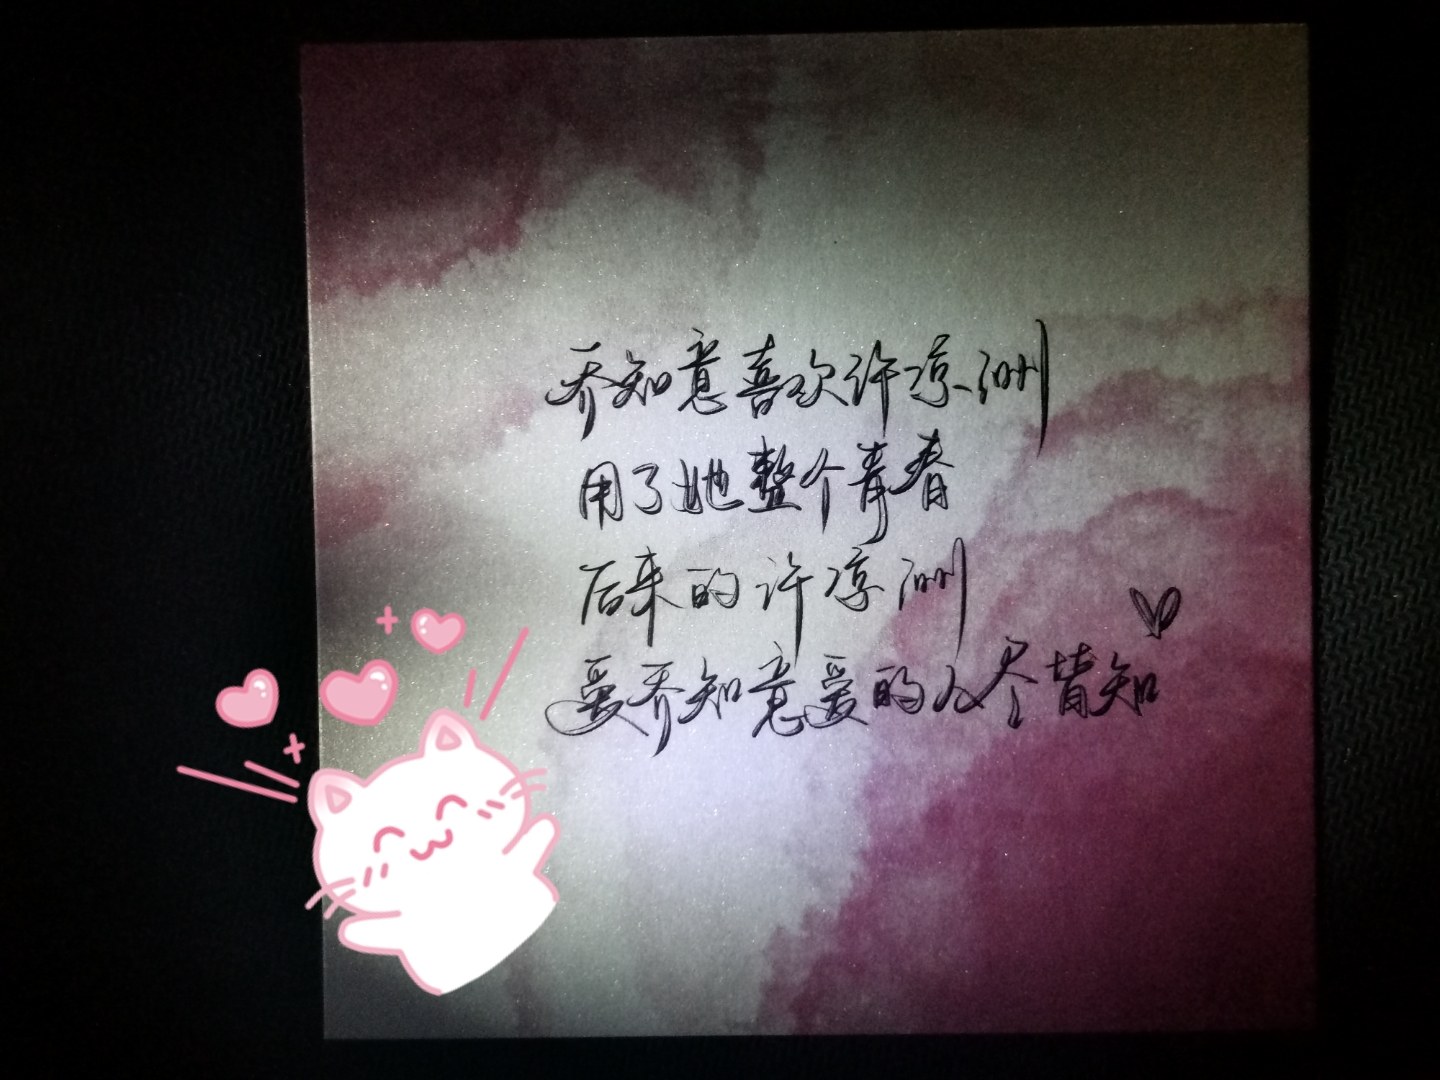 乔知意喜欢许凉洲
用了她整个青春
后来的许凉洲
爱乔知意爱的人尽皆知